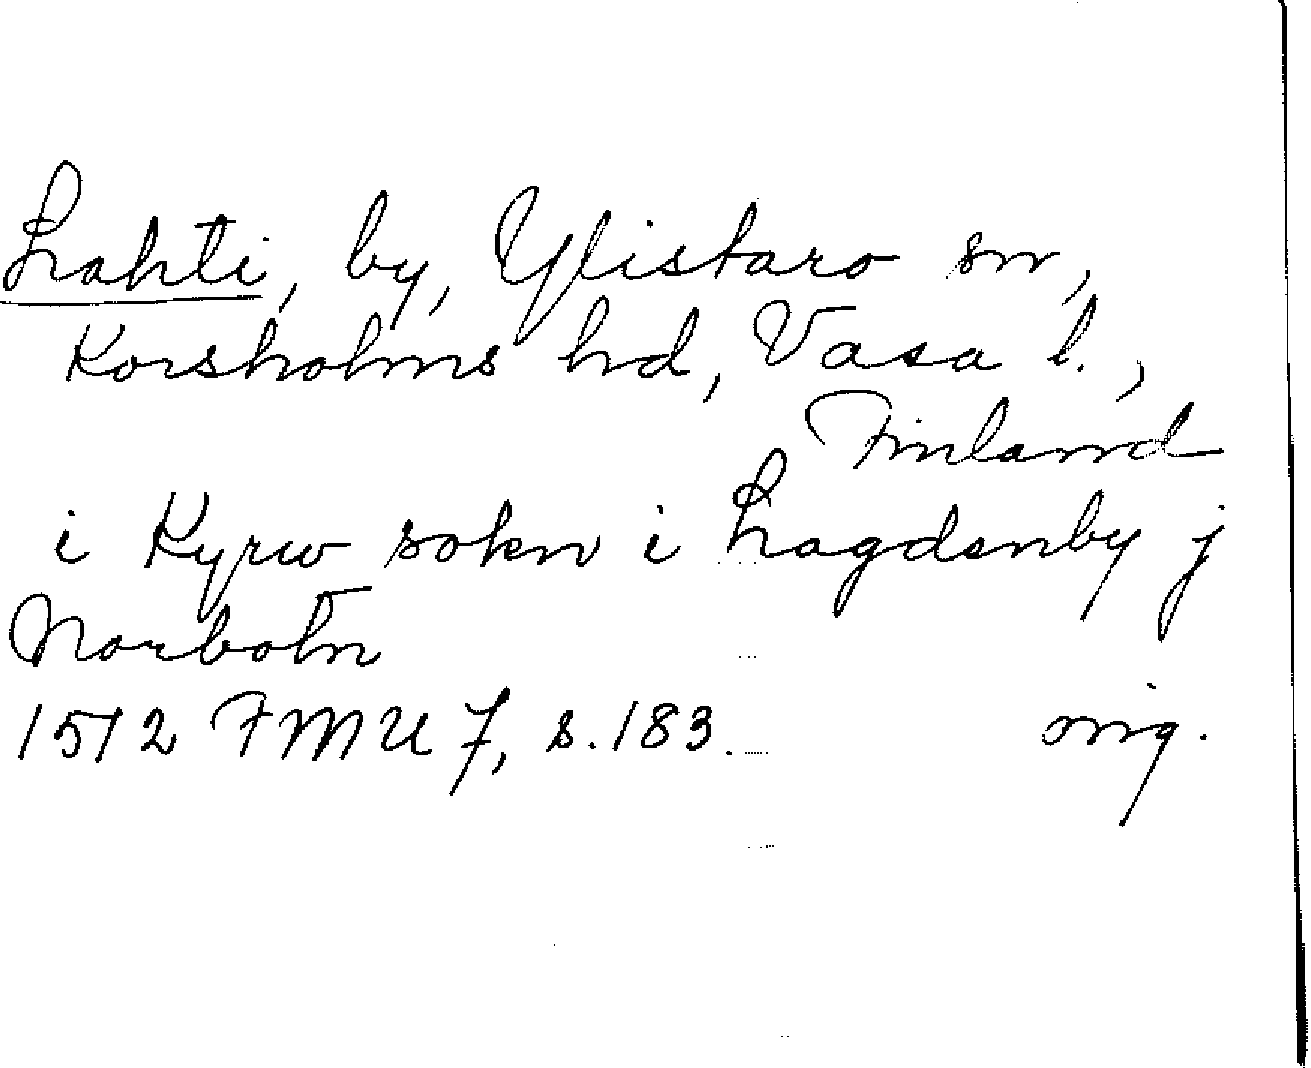 Lahti, by, Ylistaro sn,
Korsholms hd, Vasa l.,
Finland
i Kyrw sokn i Lagdenby j
Norbotn
1512 FMU 7, s. 183. orig.